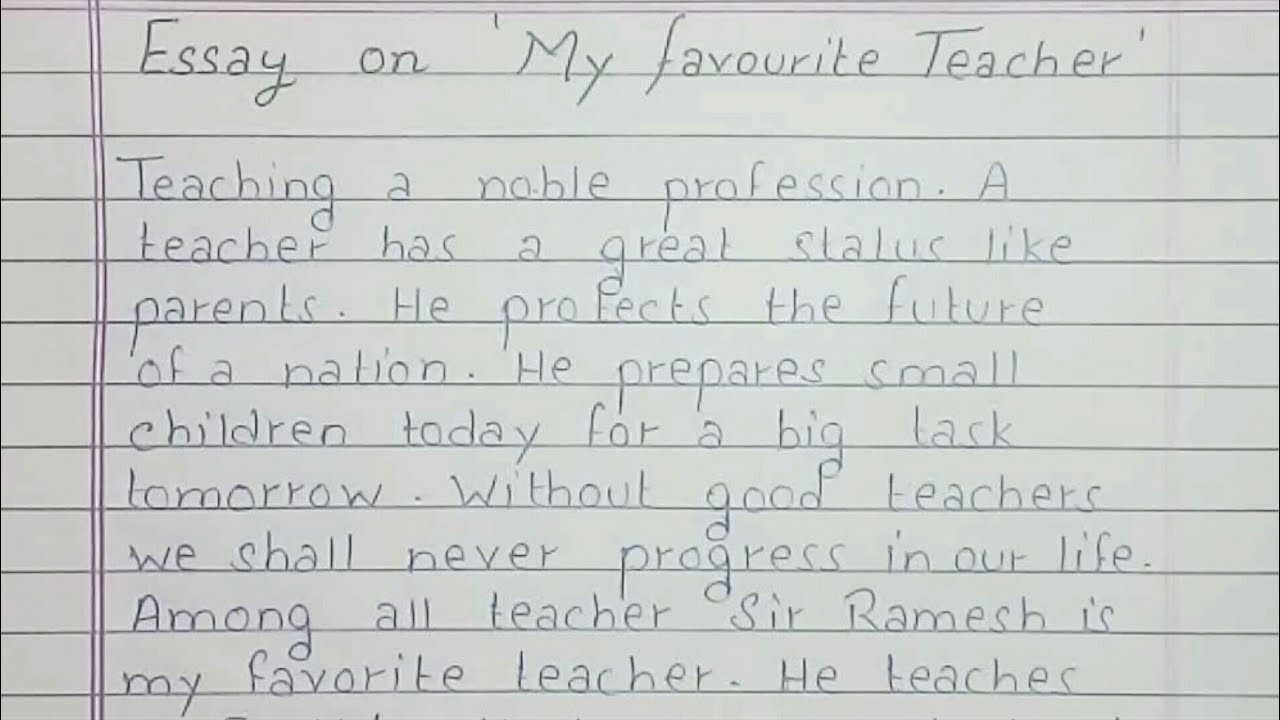 Essay on 'My favourite Teacher'
Teaching a noble profession. A
teacher has a great status like
parents. He profects the future
of a nation. He prepares small
children today for a big task
tomorrow. Without good teachers
we shall never progress in our life.
Among all teacher Sir Ramesh is
my favorite teacher. He teaches